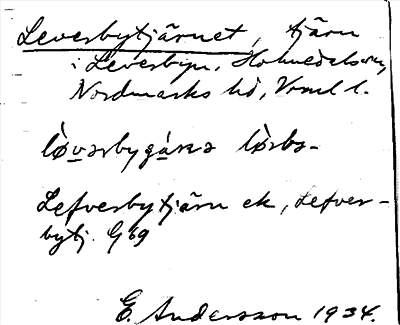 Leverbytjärnet, tjärn
i Leverbyn, Holmedals sn,
Nordmarks hd, Vrml l.
Lefverbytjärn ek, Lefver-
bytj. G 69
E. Andersson 1934.